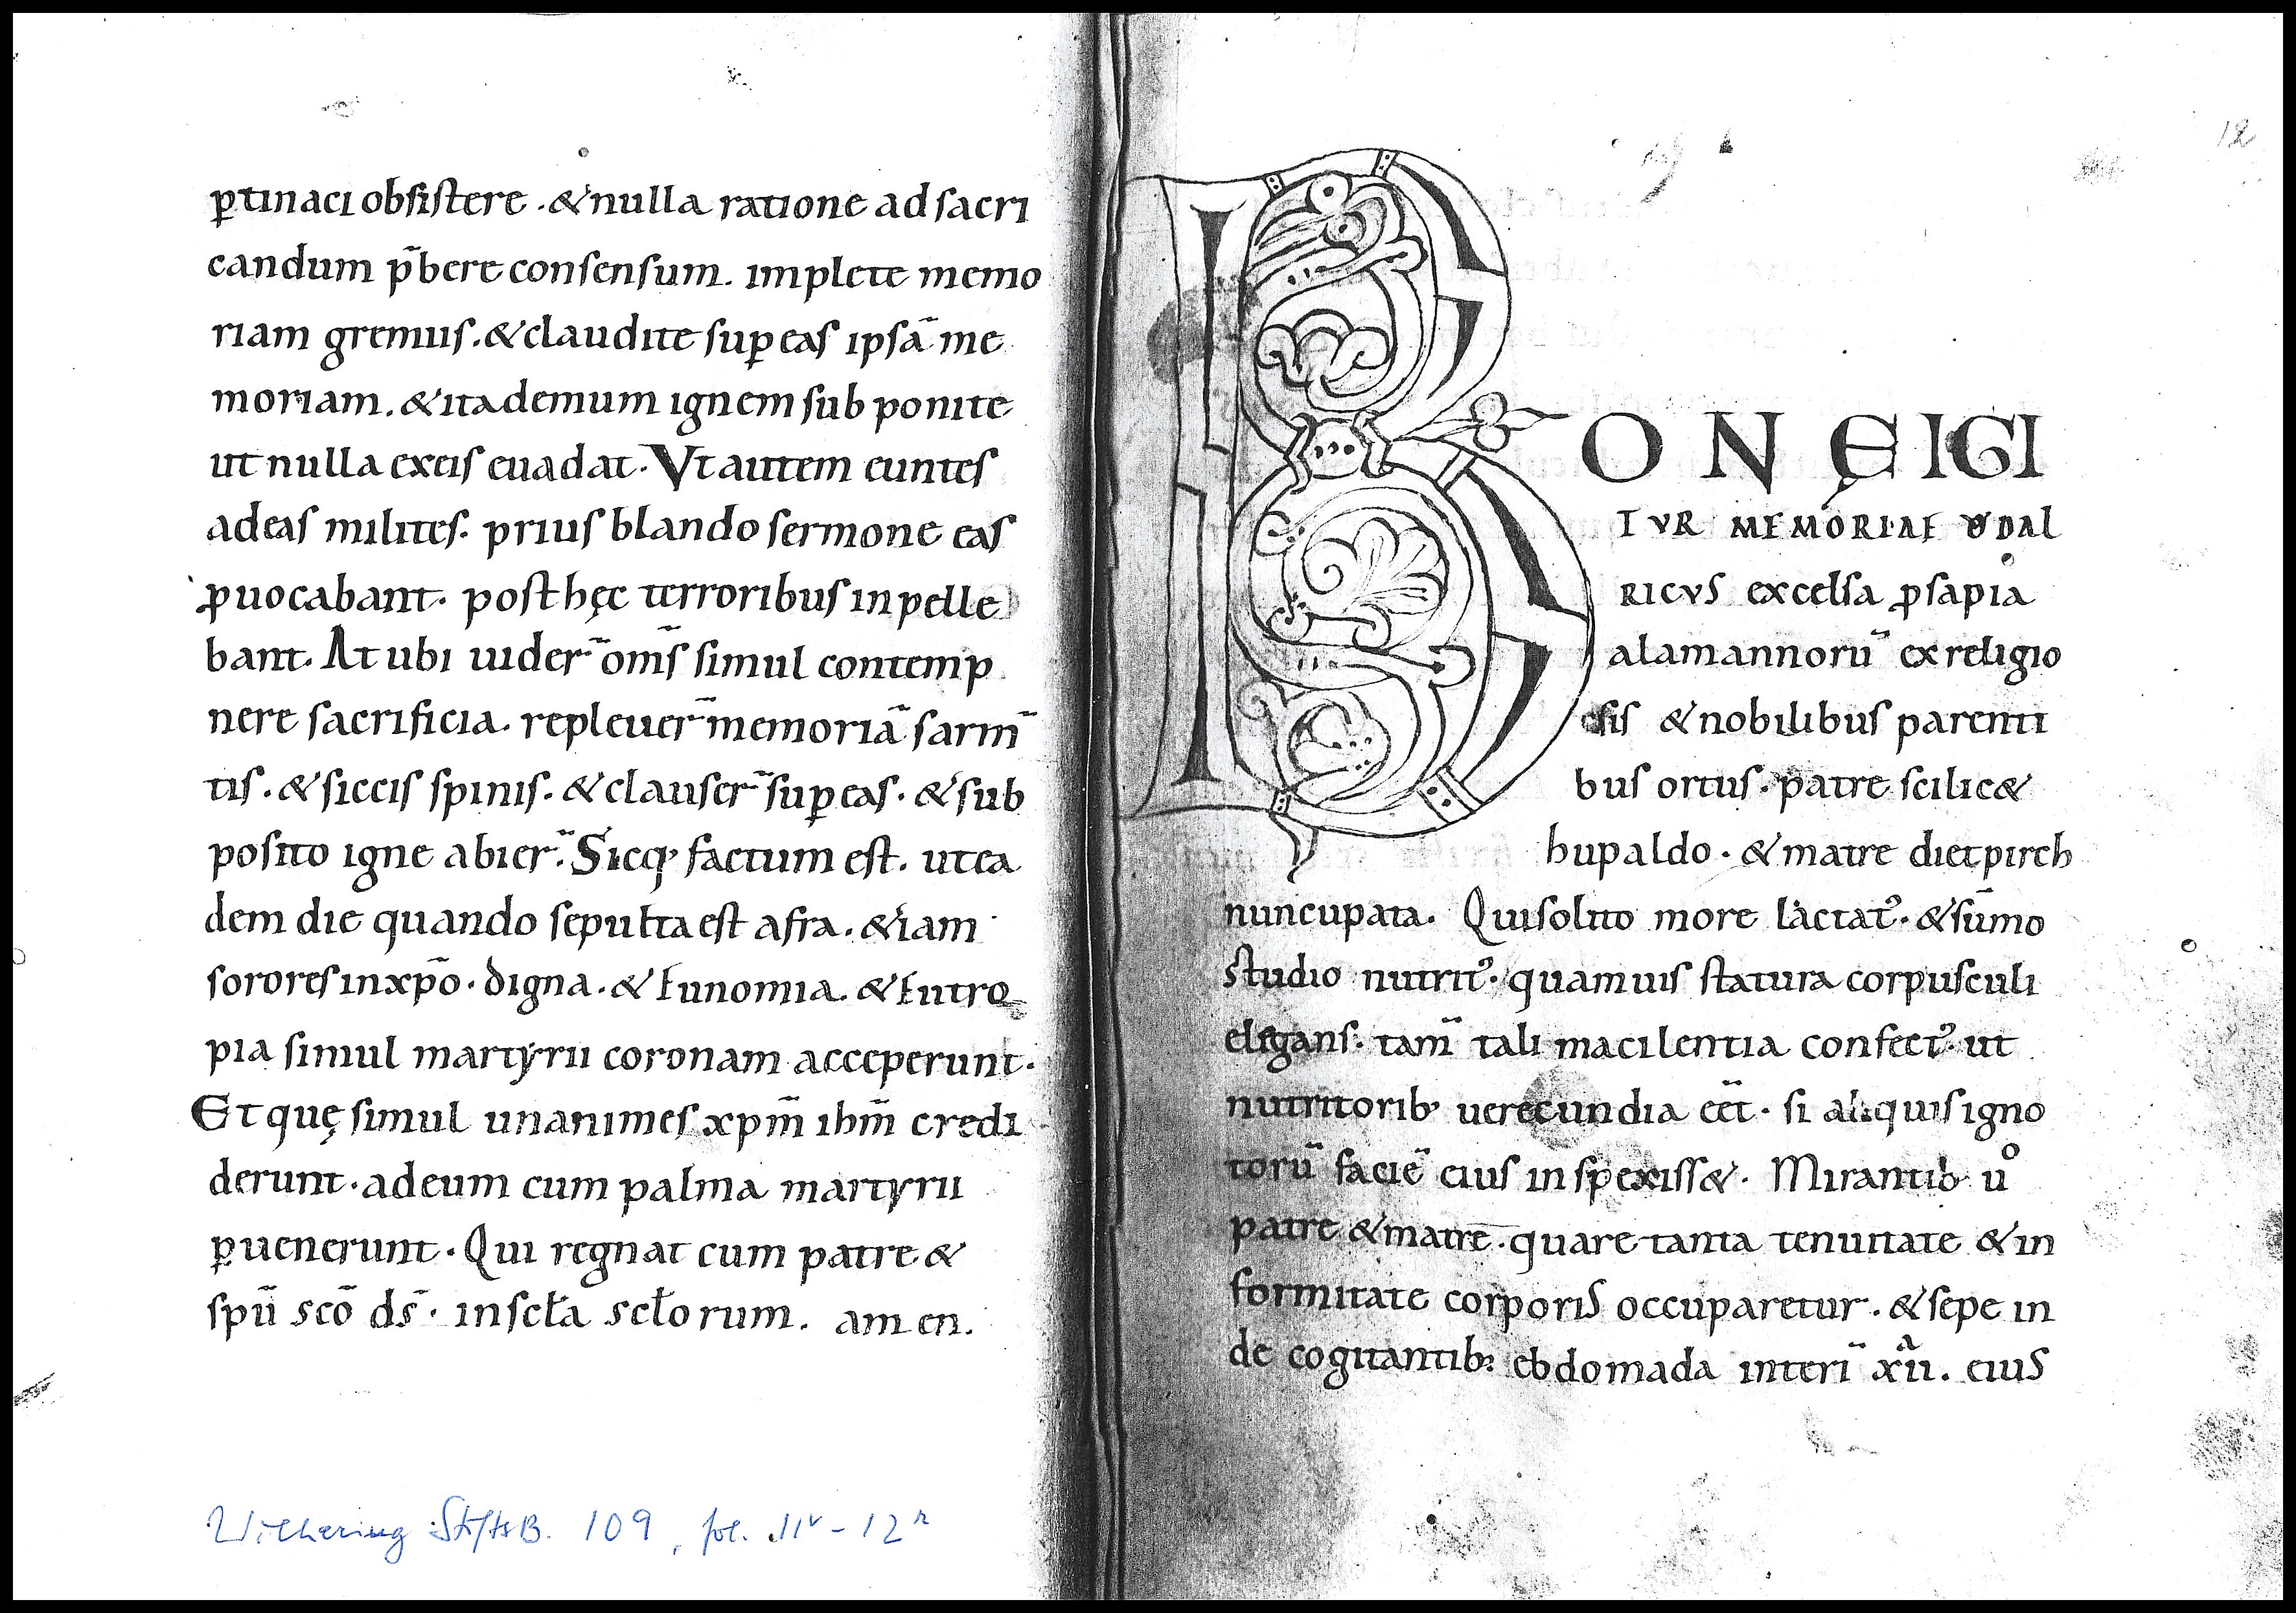 ꝑtinaci obsistere . & nulla ratione ad sacri
candum p̄bere consensum. implete memo
riam gremiis . & claudite suꝑ eas ipsā me
moriam . & ita demum ignem sub ponite
ut nulla ex eis euadat . Vt autem euntes
ad eas milites . prius blando sermone eas
ꝓuocabant . post hęc terroribus inpelle
bant . At ubi uider̄ om̄s simul contemp
nere sacrificia . repleuer̄ memoriā sarm̄
tis . & siccis spinis . & clauser̄ suꝑ eas . & sub
posito igne abier̄ . Sicq; factum est . ut ea
dem die quando sepulta est afra . & iam
sorores in xp̄o . digna . & Eunomia . & Eutro
pia simul martyrii coronam acceperunt .
Et quę simul unanimes xpm̄ ihm̄ credi
derunt . ad eum cum palma martyrii
ꝑuenerunt . Qui regnat cum patre &
spū scō ds̄ . in scła scłorum . amen .
Wilhering StiftsB. 109, fol. 11v - 12r
12
B ON Ę IGI
TVR MEMORIAE VODAL
RICVS excelsa ꝓsapia
alamannorū ex religio
sis & nobilibus parenti
bus ortus . patre scilic&
hupaldo . & matre dietpirch
nuncupata . Qui solito more lactatꝰ . & sūmo
studio nutritꝰ . quamuis statura corpusculi
elegans . tam̄ tali macilentia confectꝰ . ut
nutritorib; uerecundia eēt . si aliquis igno
torū faciē eius inspexiss& . Mirantib; uͦ
patre & matre . quare tanta tenuitate & in
formitate corporis occuparetur . & sepe in
de cogitantib; ebdomada interī xͣii . eius